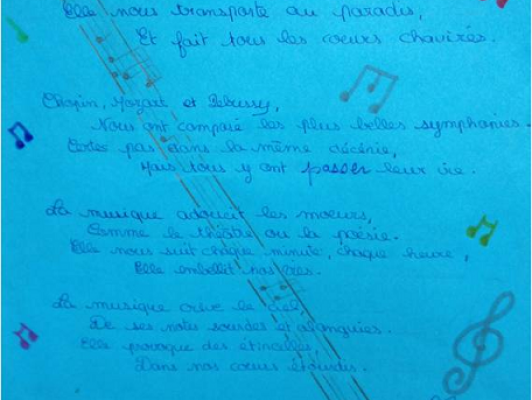 Elle nous transporte au paradis,
Et fait tous les cœurs chavirés.
Chopin, Mozart et Debussy,
Nous ont composé les plus belles symphonies.
Certes pas dans la même décénie,
Mais tous y ont passer leur vie.
La musique adoucit les mœurs,
Comme le théâtre ou la poésie.
Elle nous suit chaque minute, chaque heure,
Elle embellit nos vies.
La musique crève le ciel,
De ses notes sourdes et alanguies.
Elle provoque des étincelles,
Dans nos cœurs étourdis.